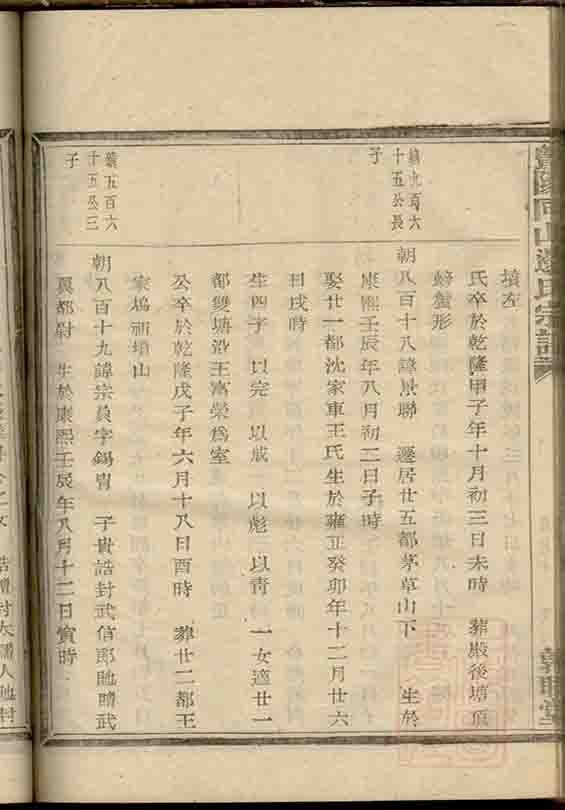 暨陽同山邊氏宗譜
墳左
氏卒於乾隆甲子年十月初三日未時 葬殿後塘頂
螃蟹形
鎮九百六
十五公長
子
朝八百十八諱景聯 遷居廿五都茅草山下 生於
康熙壬辰年八月初二日子時
娶廿一都沈家車王氏生於雍正癸卯年十二月廿六
日戌時
生四子 以完 以成 以彪 以青 一女適廿一
都雙塘沿王富榮為室
公卒於乾隆戊子年六月十八日酉時 葬廿二都王
家塢祖墳山
鎮五百六
十五公三
子
朝八百十九諱宗貟字錫胄 子貴誥封武信郎貤贈武
翼都尉 生於康熙壬辰年八月十二日寅時
誥贈封太淑人貤封